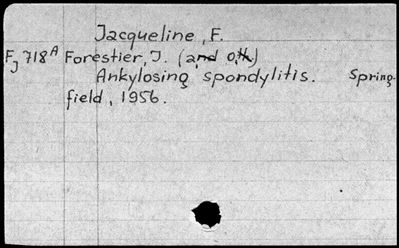 Jacqueline, F.
Fj 718A Forestier, J. (and oth)
Ankylosing spondylitis. Spring-
field, 1956.